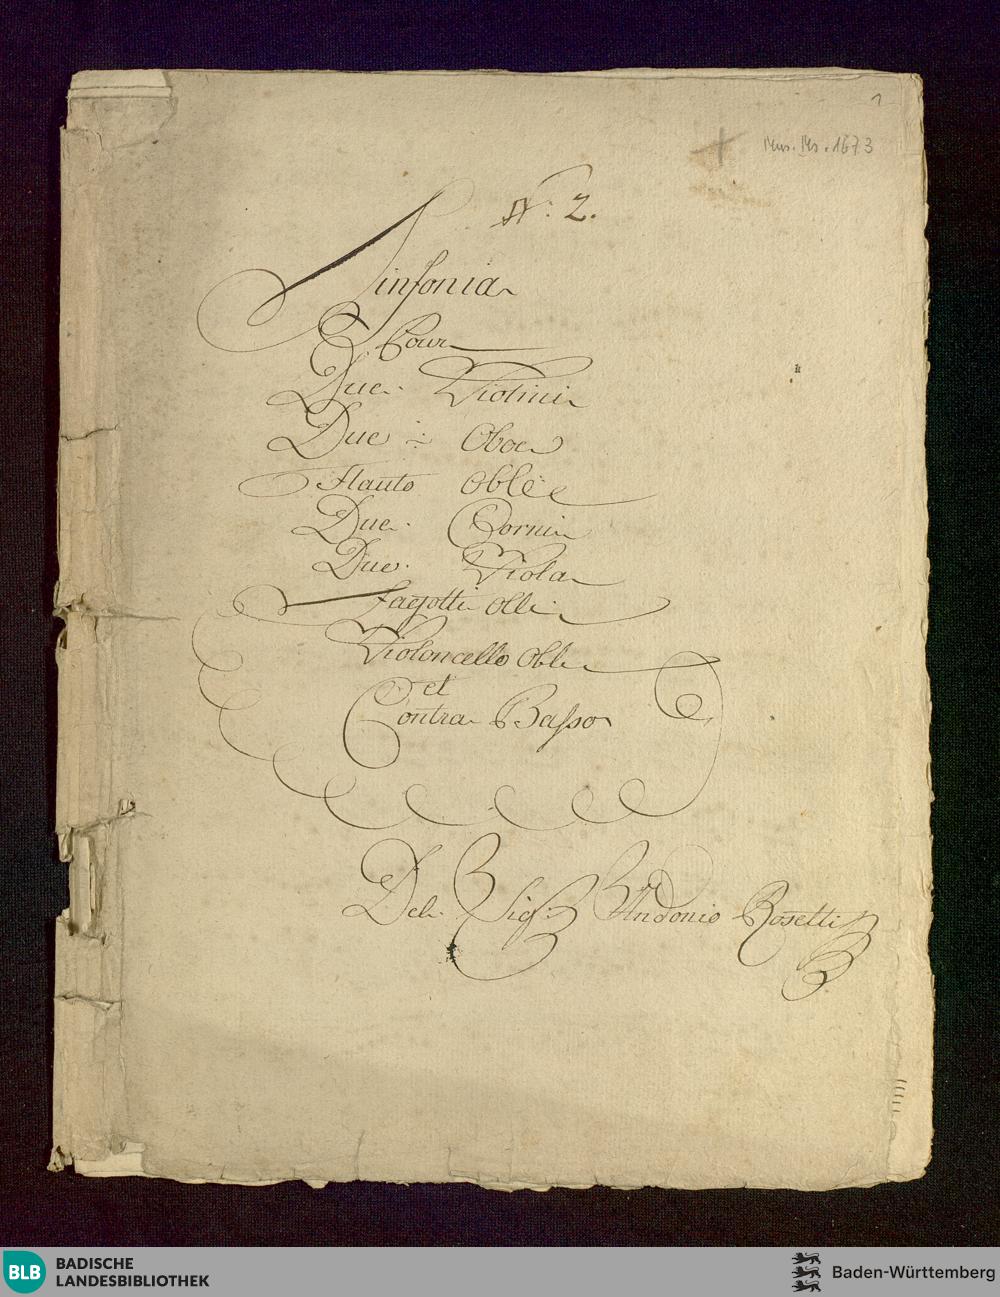 1
Mus. Ms. 1673
N: 2.
Sinfonia
Pour
Due Violini
Due Oboe
Flauto Oble
Due Corni
Due Viola
Fagotti Obli
Violoncello Oble
et
Contra Basso
Del Sig: Andonio Rosetti
BLB
BADISCHE
LANDESBIBLIOTHEK
Baden-Württemberg